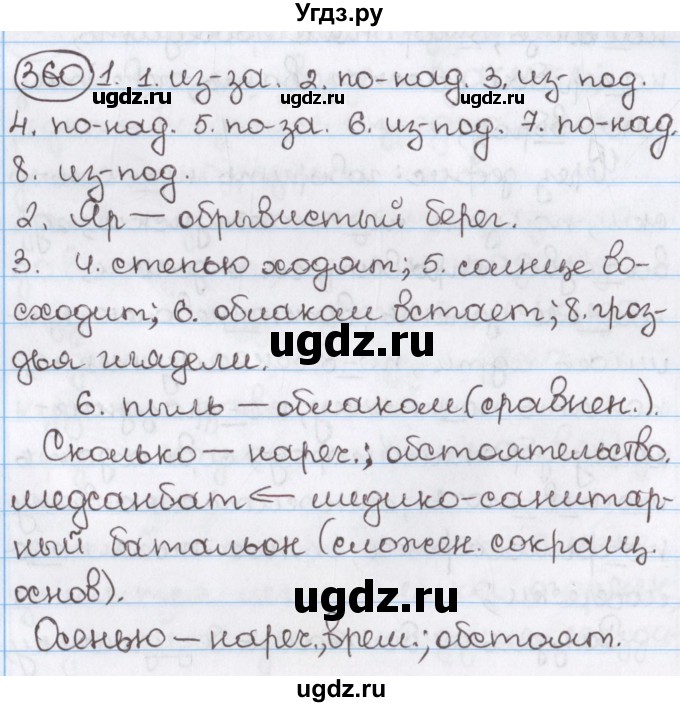 Угдз.ру
360 1. 1. из-за. 2. по-над. 3. из-под.
ugdz.ru ugdz.ru
4. по-над. 5. по-за. 6. из-под. 7. по-над.
ugdz.ru
8. из-под.
2. Яр — обрывистый берег.
3. 4. степью ходят; 5. солнце во-
сходит; 6. облаком встает; 8. гроз-
ugdz.ru
дья глядели.
6. пыль — облаком (сравнен.).
Сколько — нареч.; обстоятельство.
медсанбат ← медико-санитар-
ный батальон (сложен. сокращ.
основ).
ugdz.ru
Осенью — нареч., врем.; обстоят.
ugdz.ru